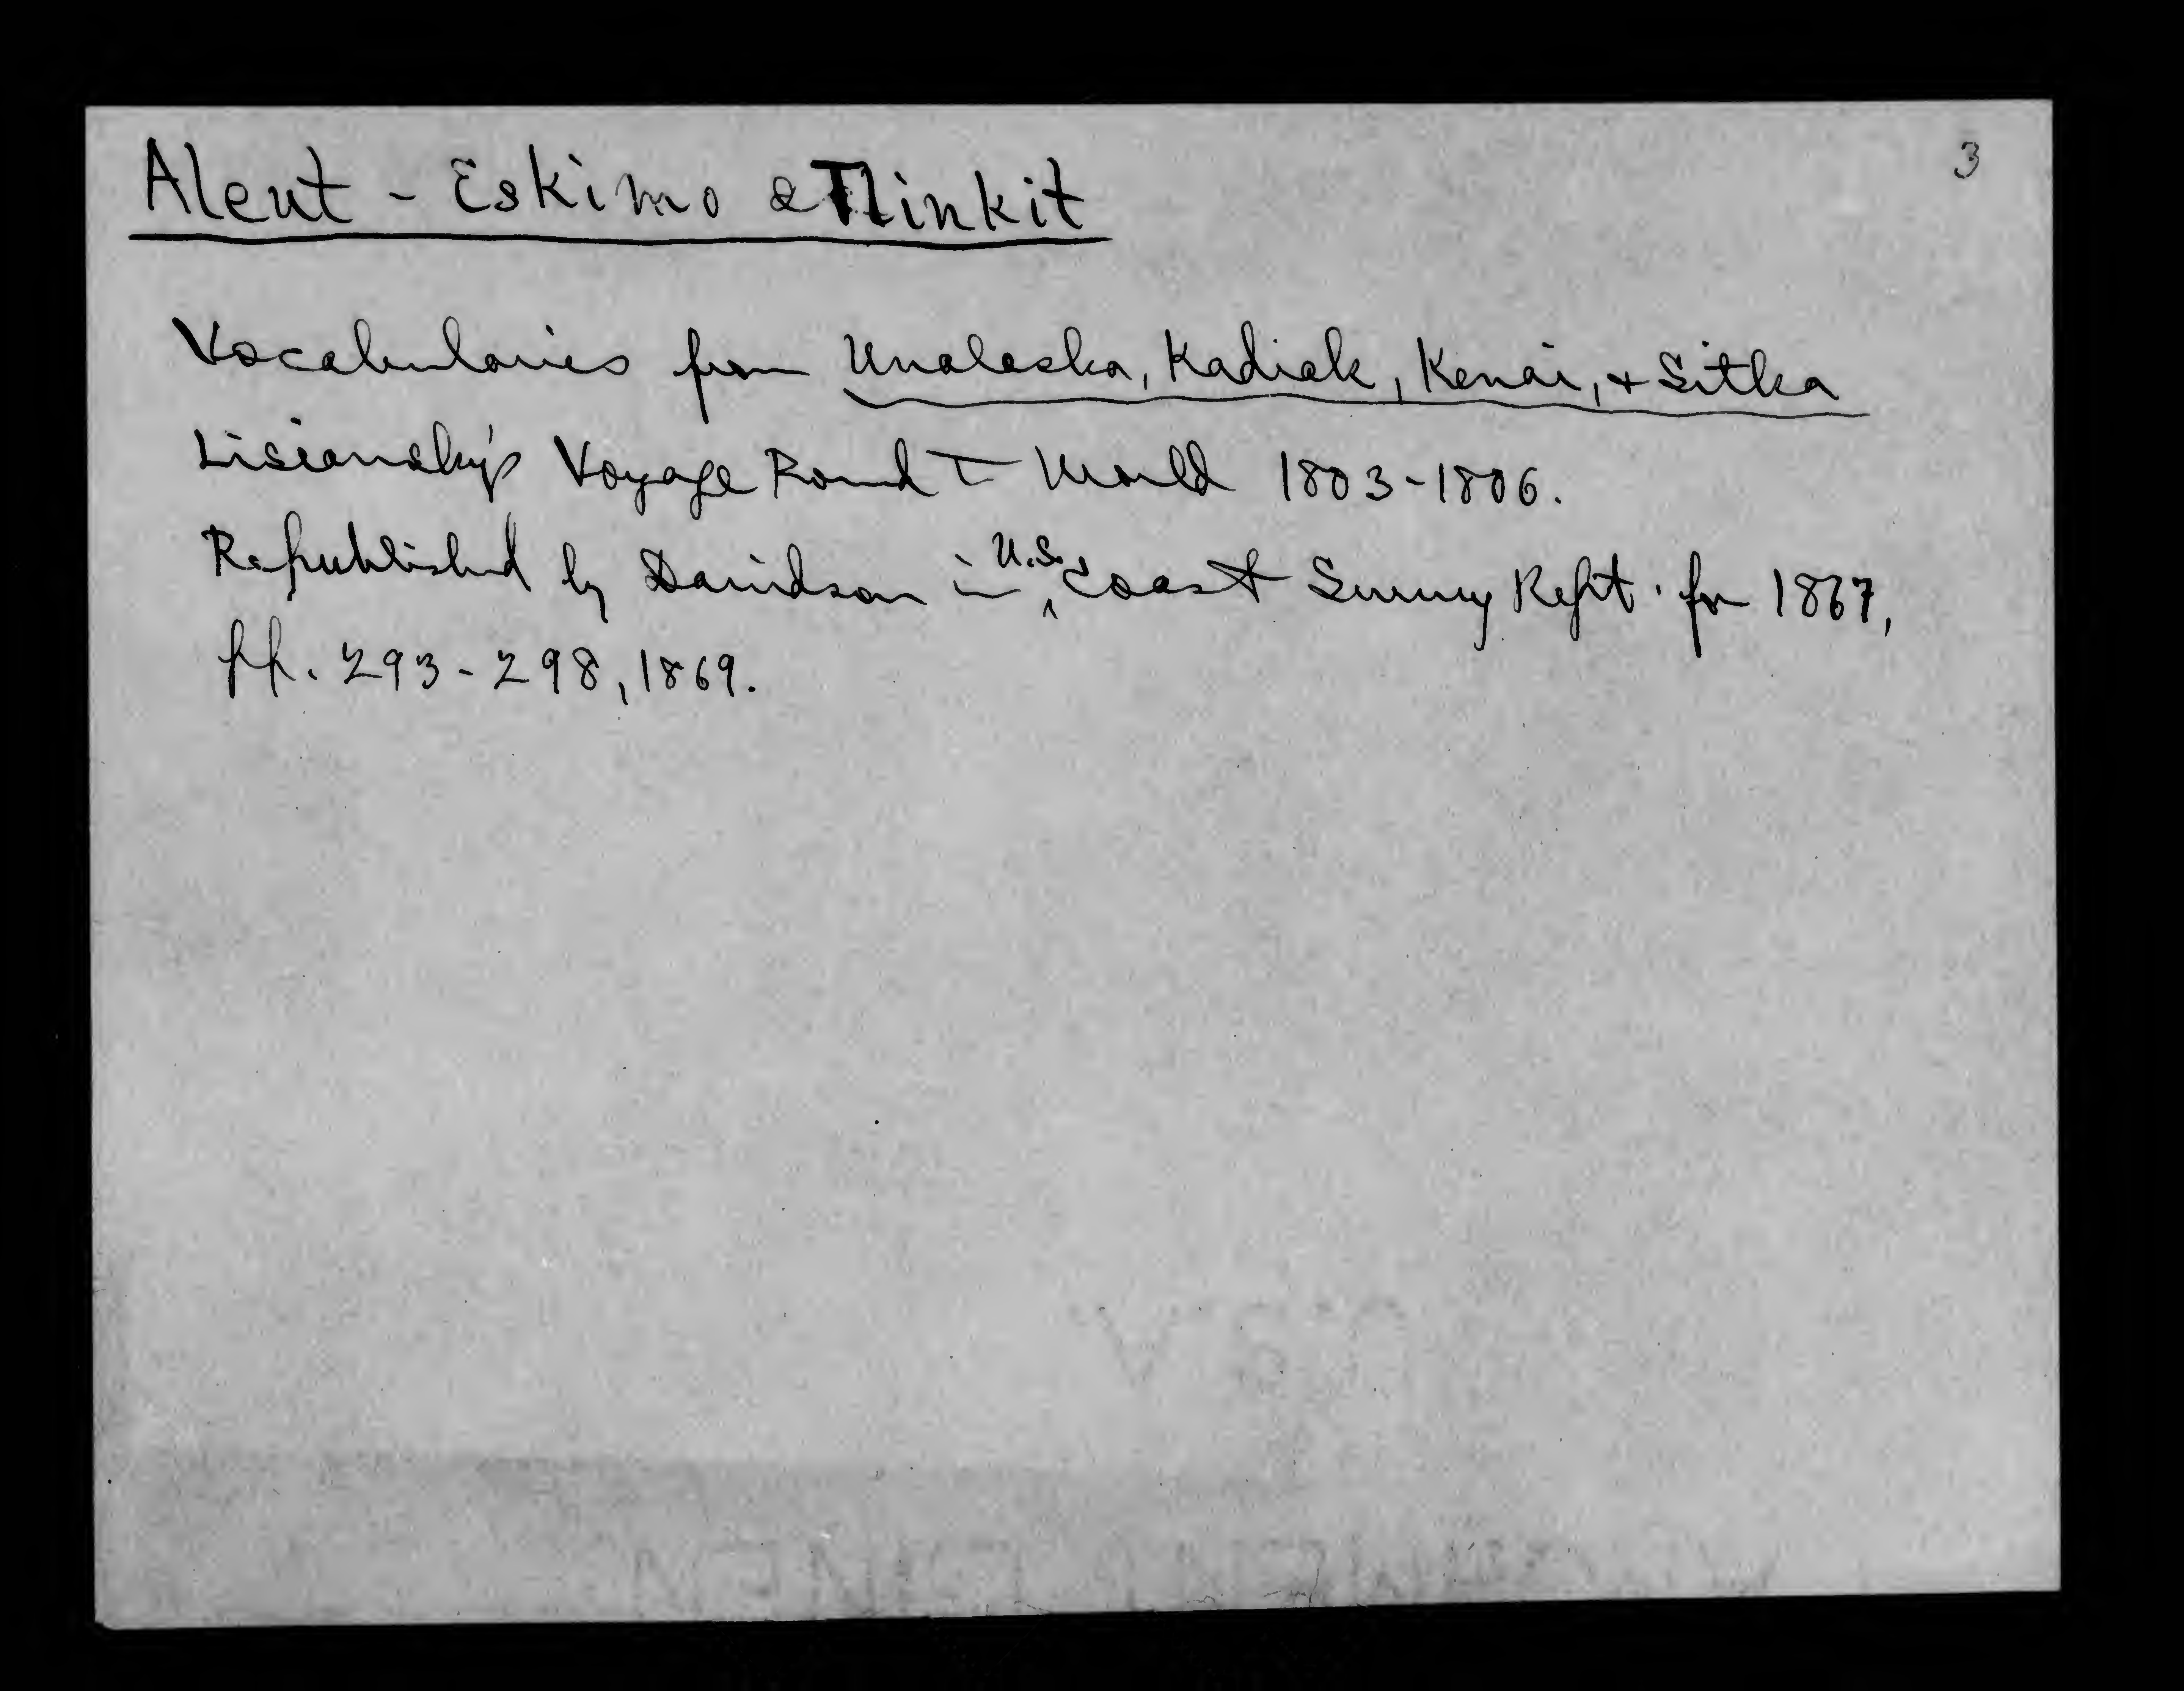 3
Aleut - Eskimo & Tlinkit
Vocabularies from Unalaska, Kadiak, Kenai, & Sitka
Lisiansky's Voyage Round T World 1803-1806.
Republished by Davidson in U.S. Coast Survey Rept. for 1867,
pp. 293-298, 1869.